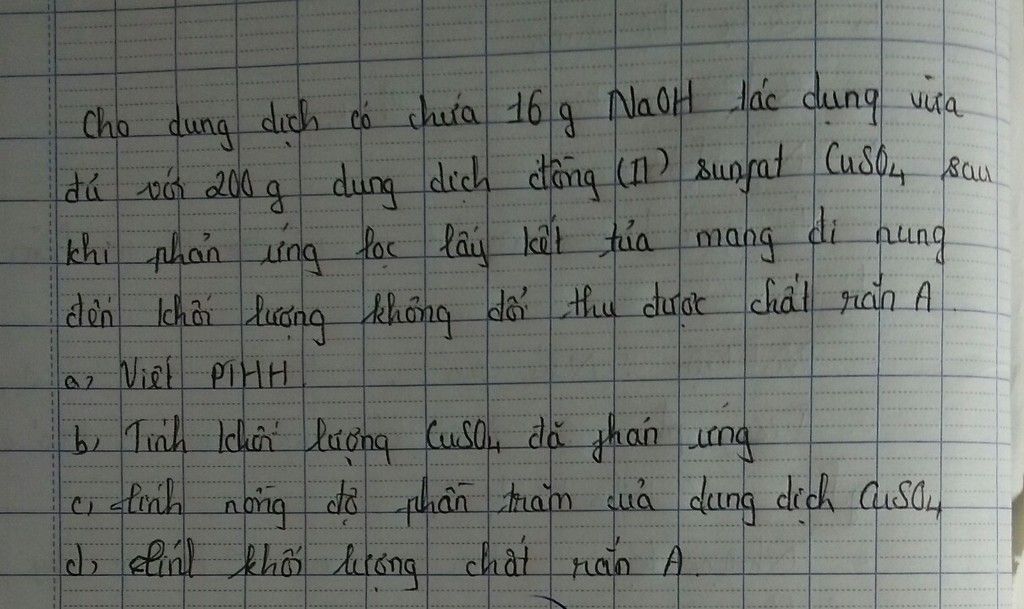 Cho dung dịch có chứa 16 g NaOH tác dụng vừa
đủ với 200 g dung dịch đồng (II) sunfat CuSO4 sau
khi phản ứng lọc lấy kết tủa mang đi nung
đến khối lượng không đổi thu được chất rắn A.
a, Viết PTHH
b, Tính khối lượng CuSO4 đã phản ứng
c, tính nồng độ phần trăm của dung dịch CuSO4
d, tính khối lượng chất rắn A.